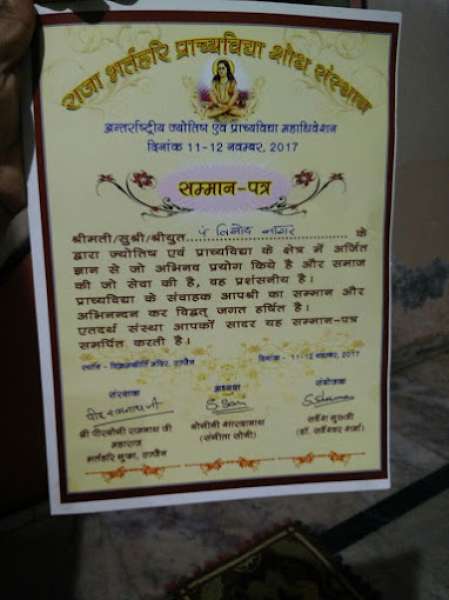 राजा भर्तहरि प्राच्यविद्या शोध संस्थान
अन्तर्राष्ट्रीय ज्योतिष एवं प्राच्यविद्या महाधिवेशन
दिनांक 11-12 नवम्बर, 2017
सम्मान-पत्र
श्रीमती/सुश्री/श्रीयुत पं विनोद नागर के
द्वारा ज्योतिष एवं प्राच्यविद्या के क्षेत्र में अर्जित
ज्ञान से जो अभिनव प्रयोग किये है और समाज
की जो सेवा की है, वह प्रशंसनीय है।
प्राच्यविद्या के संवाहक आपश्री का सम्मान और
अभिनन्दन कर विद्वत् जगत हर्षित है।
एतदर्थ संस्था आपकों सादर यह सम्मान-पत्र
समर्पित करती है।
स्थान - विक्रमकीर्ति मंदिर, उज्जैन दिनांक - 11-12 नवम्बर, 2017
संरक्षक अध्यक्ष संयोजक
श्री पीरयोगी रामनाथ जी
महाराज
भर्तहरि गुफा, उज्जैन
(संगीता सोनी)
सर्वेश गुरुजी
(डॉ. सर्वेश्वर शर्मा)